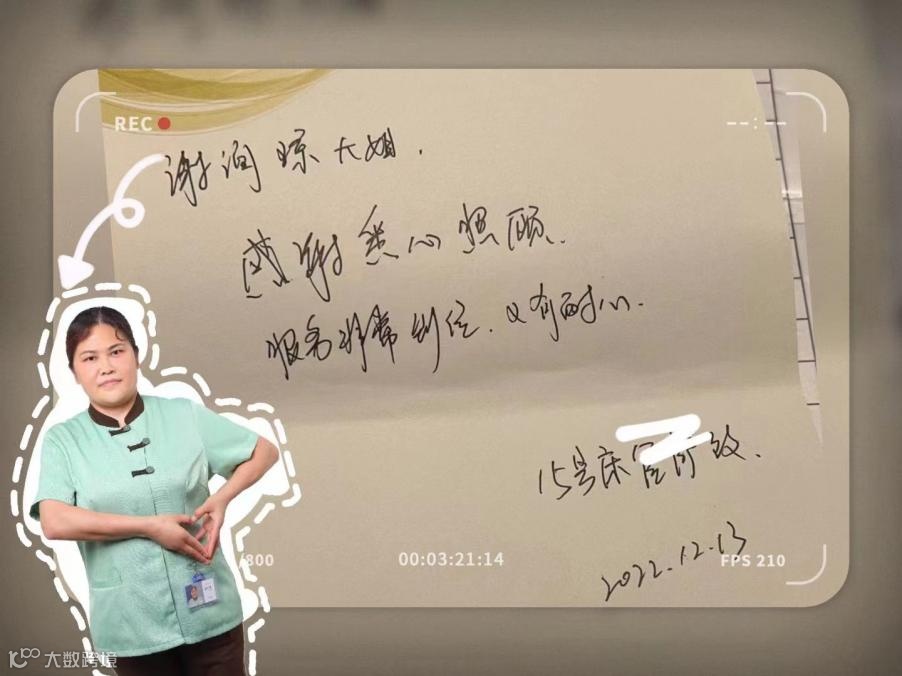 REC
--:--
谢润琼大姐.
感谢悉心照顾.
服务非常到位.又有耐心.
15号床
致.
2022.12.13
/800
00:03:21:14
FPS 210
大数跨境